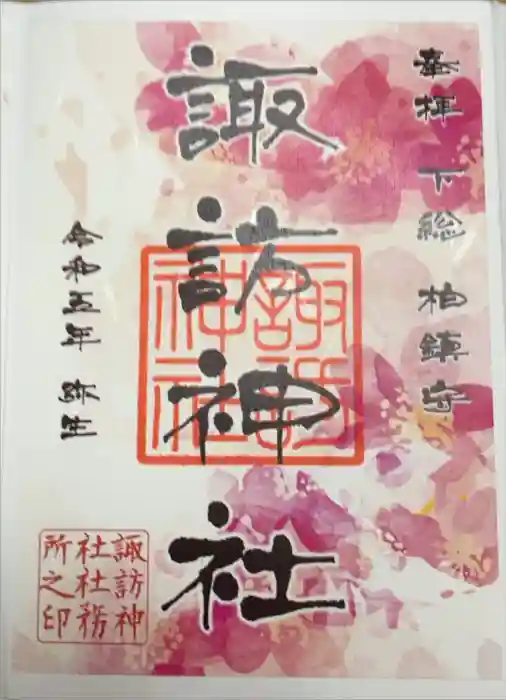 奉拝 下総 柏鎮守
諏訪神社
諏訪
神社
令和五年 弥生
諏訪神
社社務
所之印